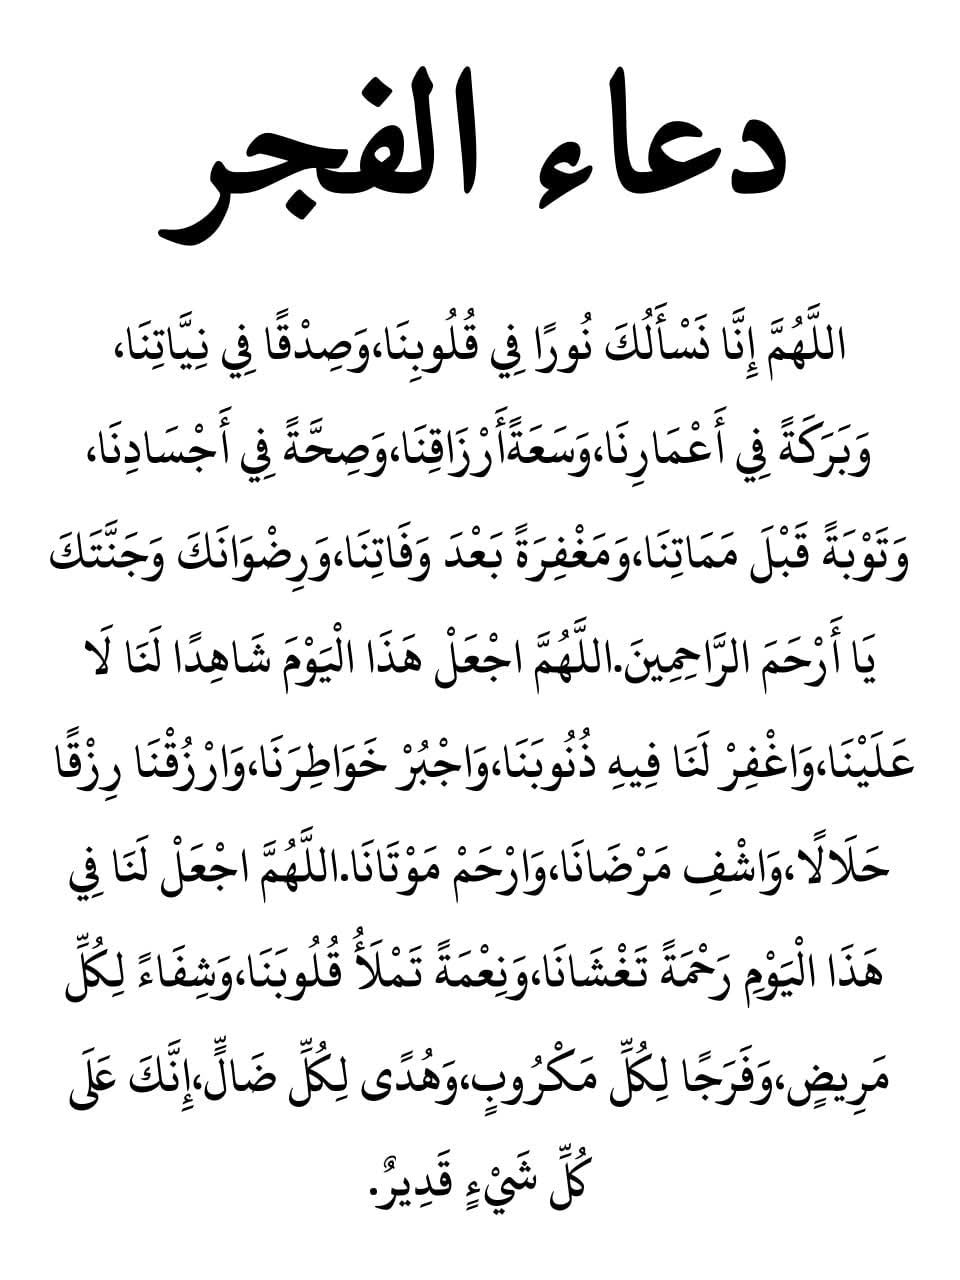 دعاء الفجر
اللَّهُمَّ إِنَّا نَسْأَلُكَ نُورًا فِي قُلُوبِنَا،وَصِدْقًا فِي نِيَّاتِنَا،
وَبَرَكَةً فِي أَعْمَارِنَا،وَسَعَةًأَرْزَاقِنَا،وَصِحَّةً فِي أَجْسَادِنَا،
وَتَوْبَةً قَبْلَ مَمَاتِنَا،وَمَغْفِرَةً بَعْدَ وَفَاتِنَا،وَرِضْوَانَكَ وَجَنَّتَكَ
يَا أَرْحَمَ الرَّاحِمِينَ.اللَّهُمَّ اجْعَلْ هَذَا الْيَوْمَ شَاهِدًا لَنَا لَا
عَلَيْنَا،وَاغْفِرْ لَنَا فِيهِ ذُنُوبَنَا،وَاجْبُرْ خَوَاطِرَنَا،وَارْزُقْنَا رِزْقًا
حَلَالًا،وَاشْفِ مَرْضَانَا،وَارْحَمْ مَوْتَانَا.اللَّهُمَّ اجْعَلْ لَنَا فِي
هَذَا الْيَوْمِ رَحْمَةً تَغْشَانَا،وَنِعْمَةً تَمْلَأُ قُلُوبَنَا،وَشِفَاءً لِكُلِّ
مَرِيضٍ،وَفَرَجًا لِكُلِّ مَكْرُوبٍ،وَهُدًى لِكُلِّ ضَالٍّ،إِنَّكَ عَلَى
كُلِّ شَيْءٍ قَدِيرٌ.